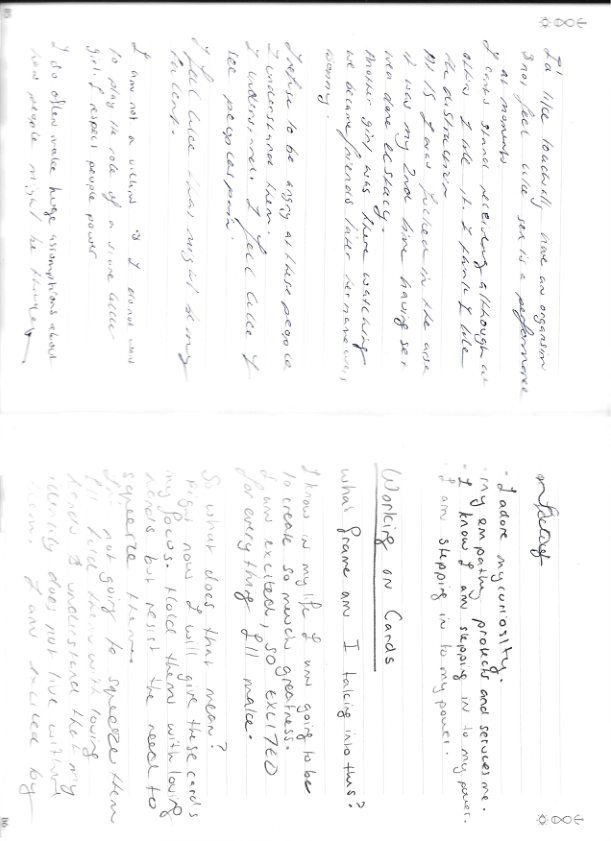 I'd like to actually have an orgasm
& not feel like sex is a performance
at moments
I can't stand receiving although at
times I like it. I think I like
the distraction
I was fucked in the arse
it was my 2nd time having sex
was done ecstacy.
Another girl was there watching
we became friends later her name was
Jenny.
I refuse to be angry at these people
I understand them.
I understand. I feel like I
see peoples pain.
I feel like that might be my
talent.
I am not a victim & I do not want
to play the role of a sore little
girl. I respect people power
I do often make huge assumptions about
how people might be
85
- I adore my curiosity.
- my empathy protects and services me.
- I know I am stepping in to my power.
- I am stepping in to my power.
Working on Cards
What frame am I taking into this?
I know in my life I am going to be
to create so much greatness.
I am excited, so EXCITED
for everything I'll make.
So what does that mean?
Right now I will give these cards
my focus. Hold them with loving
hands but resist the need to
squeeze them.
I'm not going to squeeze them
I'll hold them with loving
hands & understand that my
identity does not live within
them. I am excited by
86